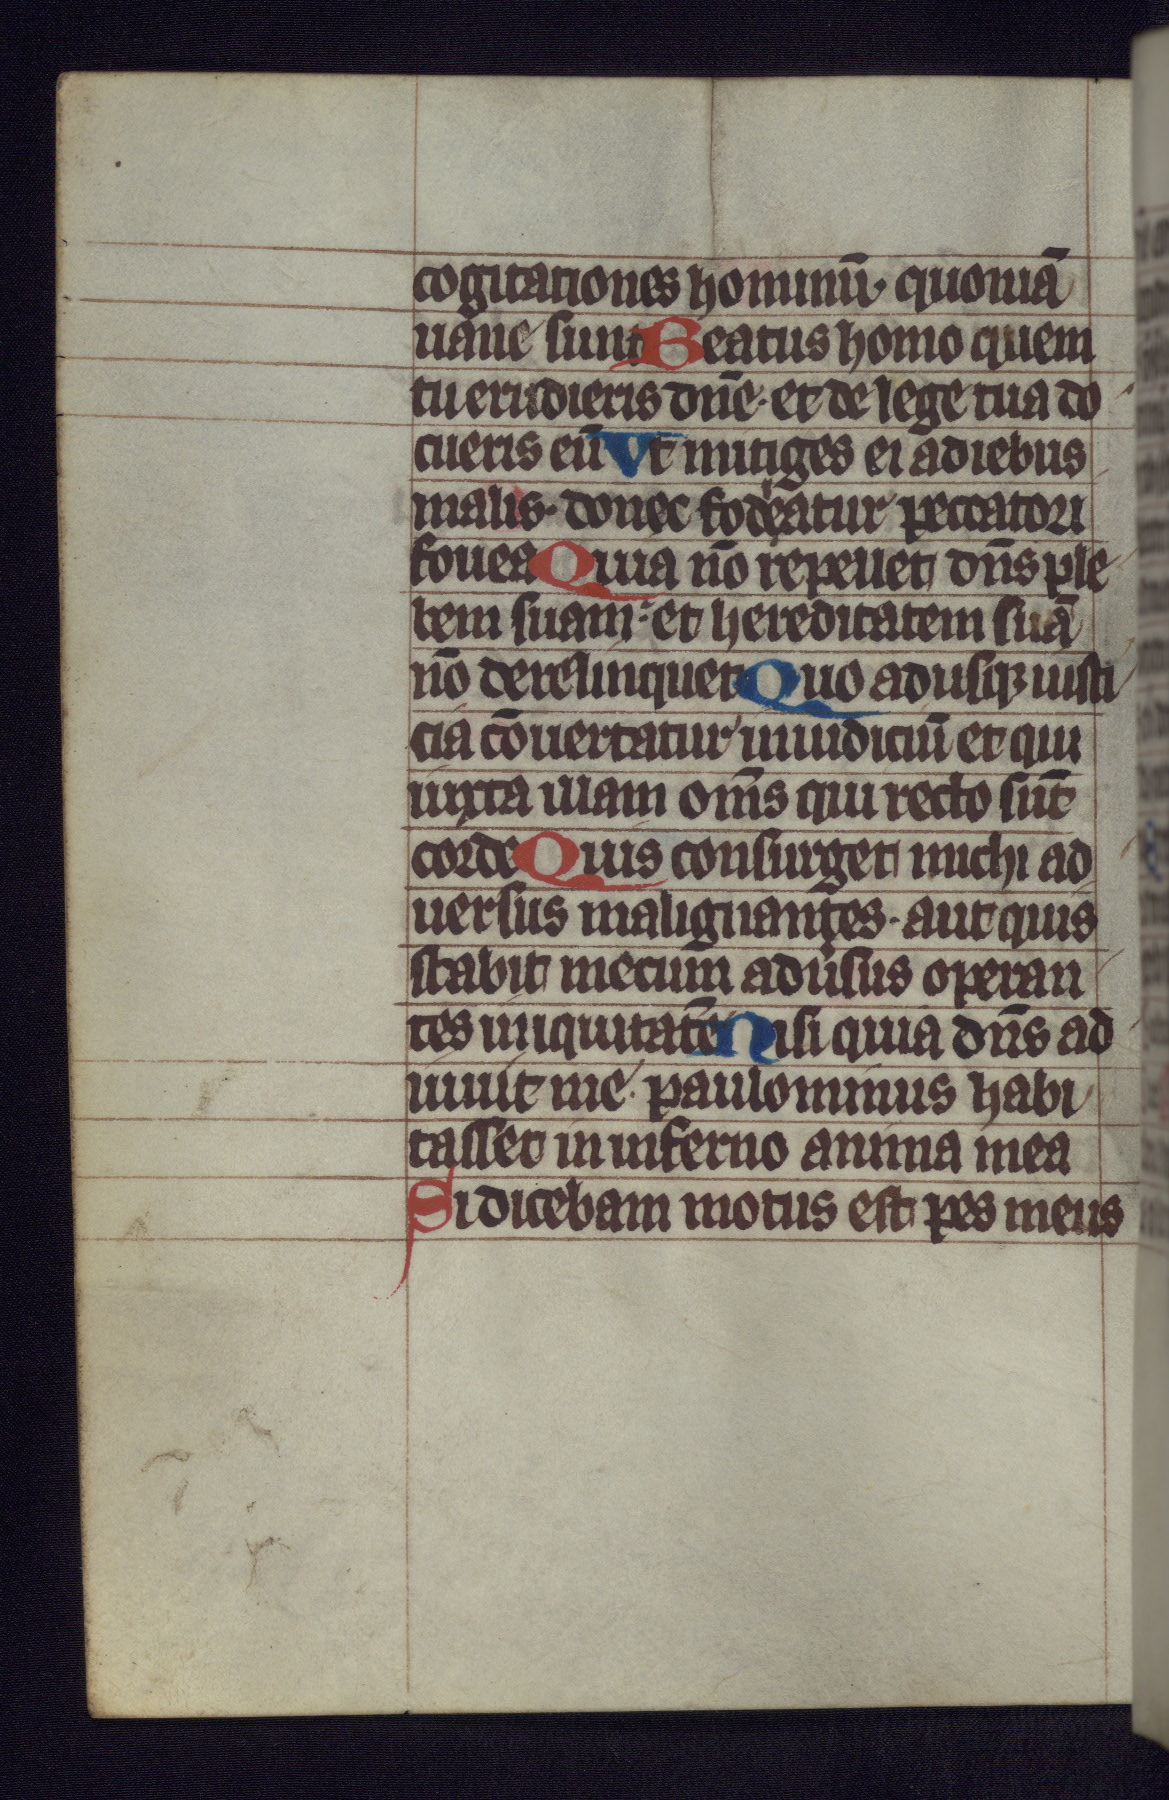 cogitationes hominū· quoniā
uane sunt Beatus homo quem
tu erudieris dn̄e· et de lege tua do
cueris eū Vt mitiges ei a diebus
malis· donec fodeatur peccatori
fouea Quia nō repellet dn̄s ple
bem suam· et hereditatem suā
nō derelinquet Quo adusqꝫ iusti
cia cōuertatur in iudiciū et qui
iuxta illam om̄s qui recto sūt
corde Quis consurget michi ad
uersus malignantes· aut quis
stabit mecum adūsus operan
tes iniquitatē Nisi quia dn̄s ad
iuuit me· paulominus habi
tasset in inferno anima mea
Si dicebam motus est pes meus